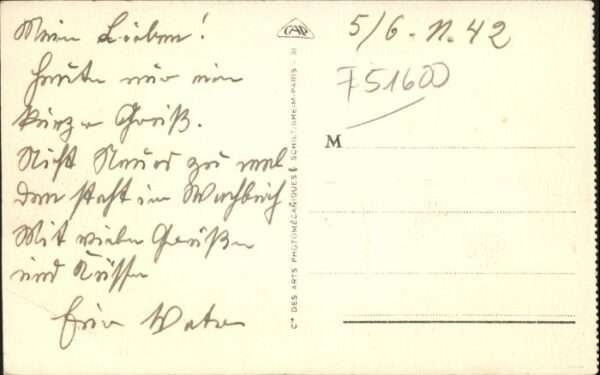 Meine Lieben!
Heute nur ein
kurzer Gruß.
Nicht Neues zu mel
den steht im
Mit vielen Grüßen
und Küssen
Euer Vater
CAP
Cie DES ARTS PHOTOMÉCANIQUES SCHILTIGHEIM-PARIS - 31
5/6 - n. 42
F51600
M